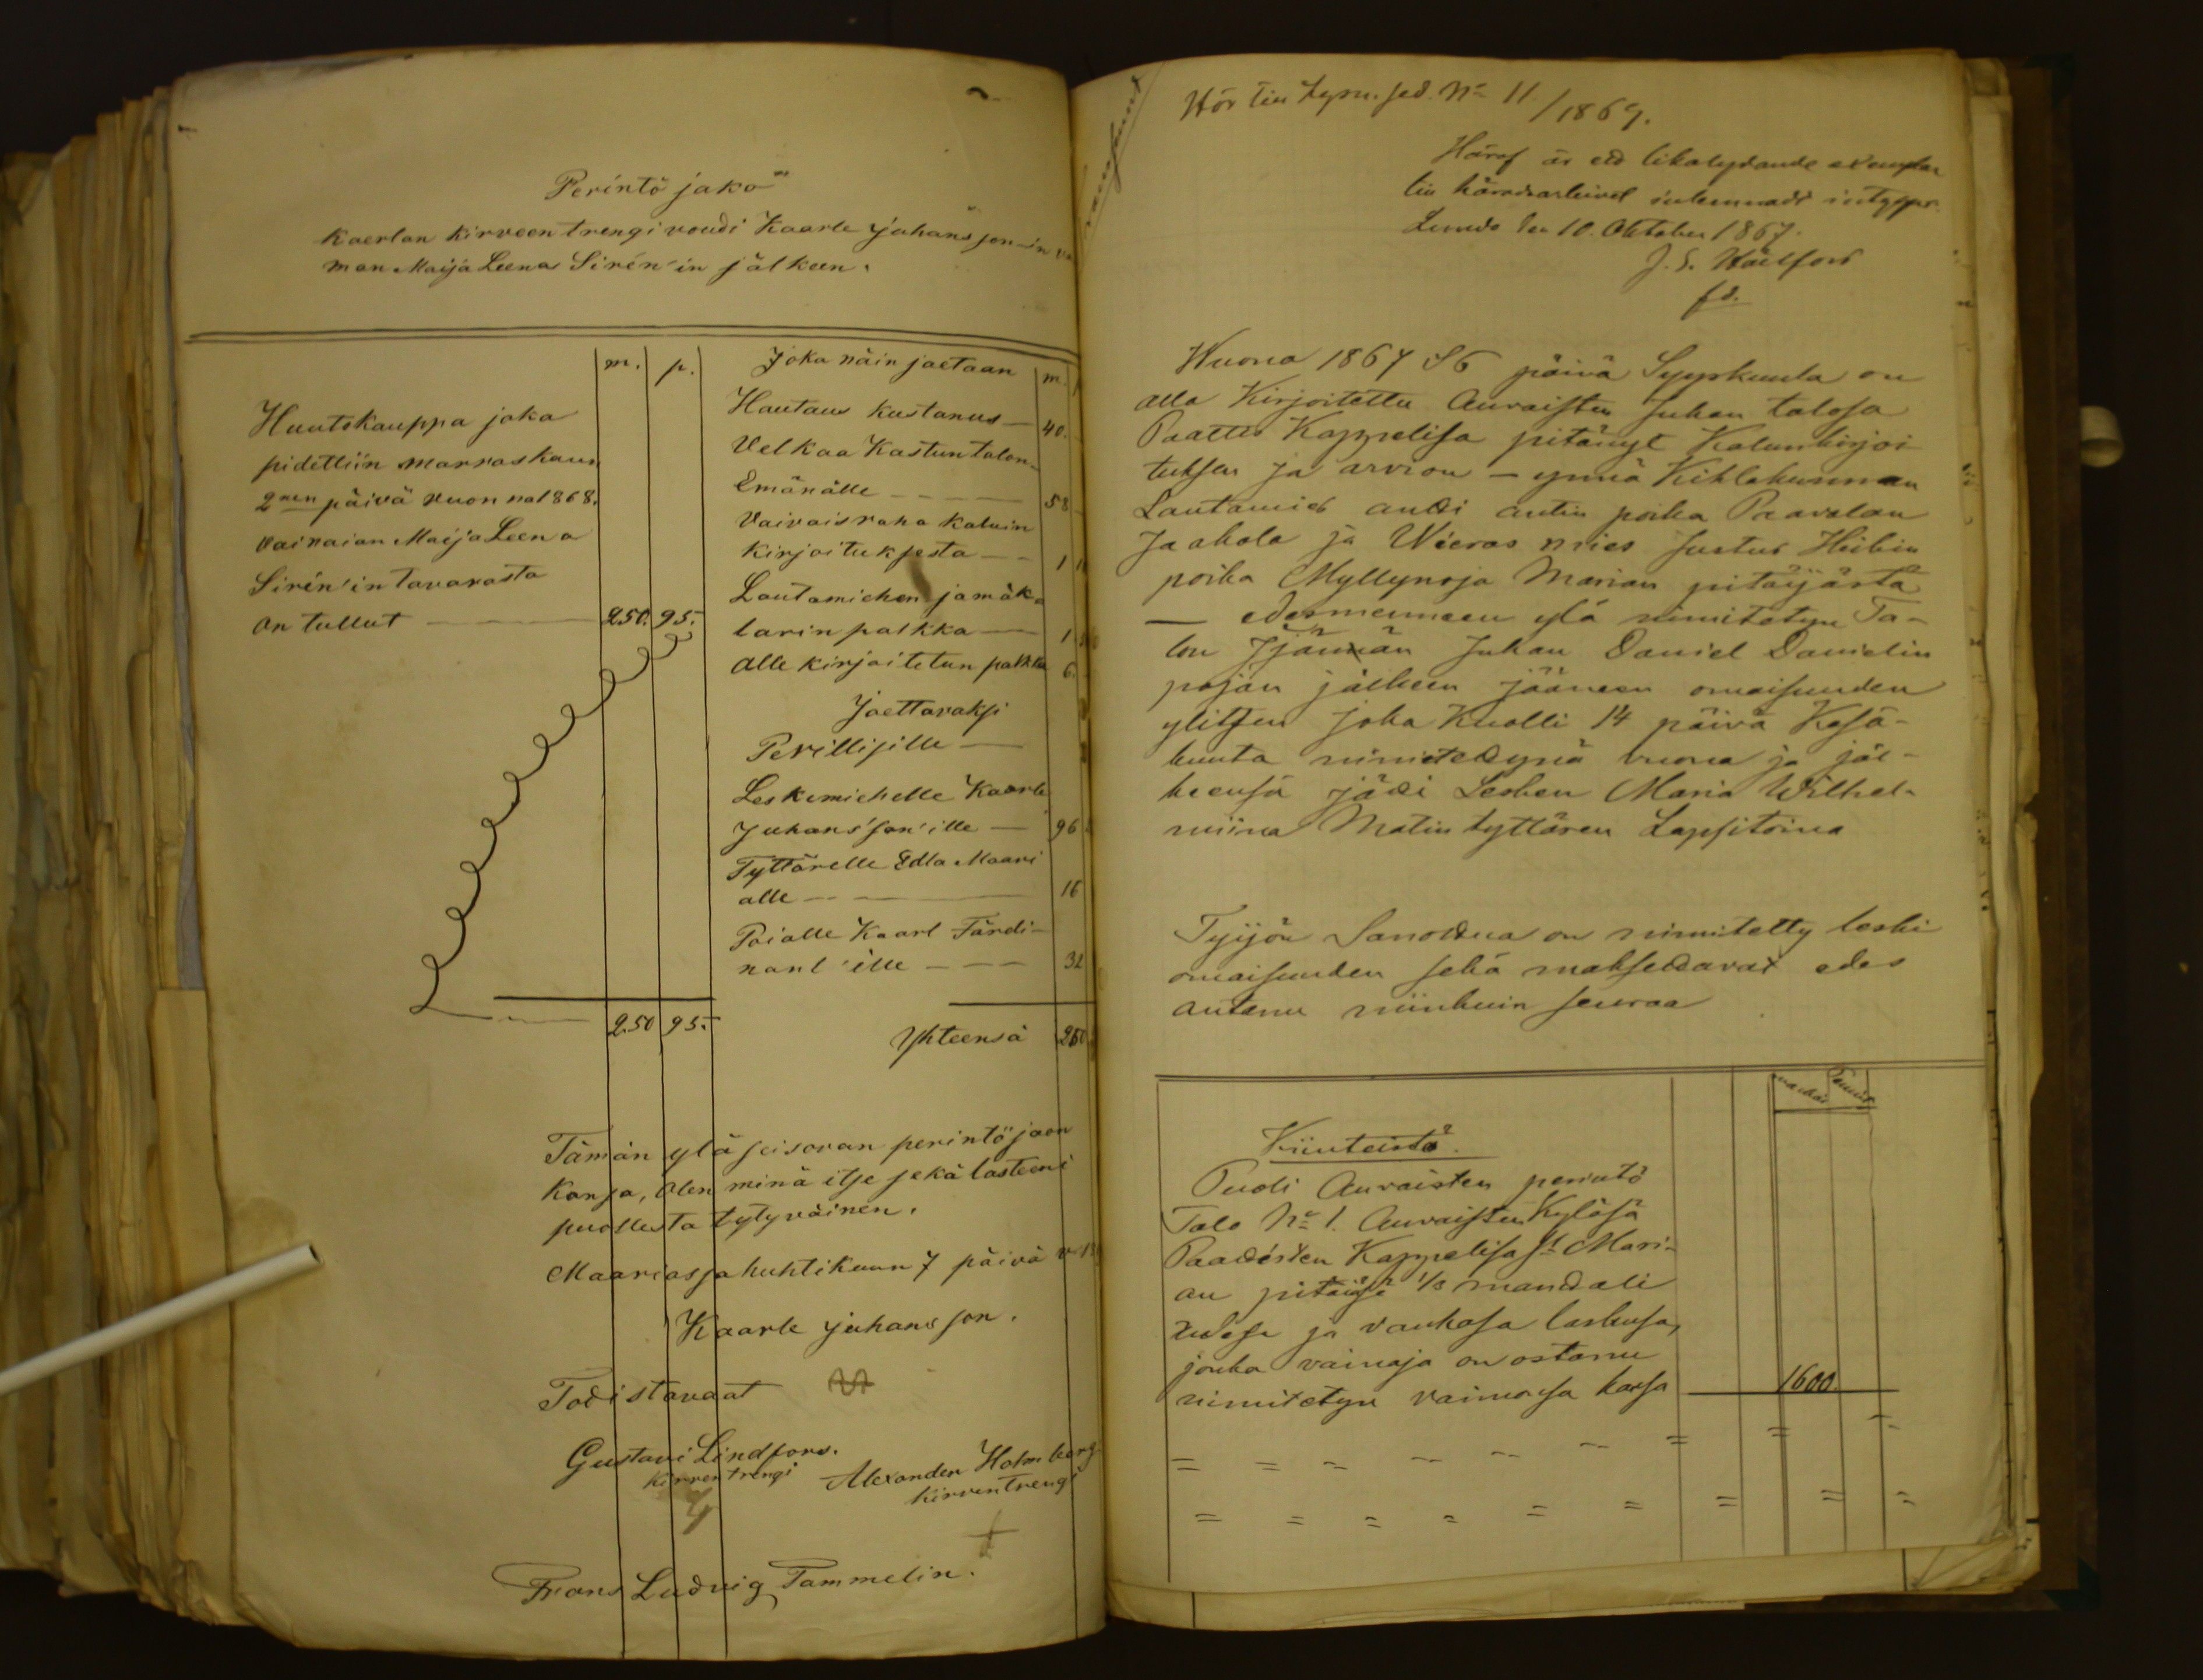 Perintö jako
Kaerlan Kirveen trengi voudi Kaarle Juhansson-in
man Maija Leena Sirén'in jälkeen.
m. p.
Huutokauppa joka
pidettiin Marraskuun
2nen päivä vuonna 1868.
vainaian Maija Leena
Sirén'in tavarasta
on tullut — 250. 95.
250 95.
Joka näin jaetaan m.
Hautaus kustanus — 40.
Velkaa Kastun talon
Emänälle — 58
Vaivaisraha kaluin
kirjoituksesta — 1
Lautamiehen ja mäk
larin palkka — 1
alle kirjoitetun palkka 6.
Jaettavaksi
Perillisille —
Leskimiehelle Kaarle
Juhans'son'ille — 96
Tyttärelle Edla Maari
alle — 16
Poialle Kaarl Färdi-
nant'ille — 32
Yhteensä 250
Tämän ylä seisovan perintö jaon
Kansa, Olen minä itse sekä lasteeni
puollesta tytyväinen.
Maariassa huhtikuun 7 päivä v. 18
Kaarle Juhansson.
Todistavaat
Gustavi Lindfors.
Kirven trengi
Alexander Holmberg
kirven trengi
Frans Ludvig Tammelin.
Hör till N:o 11/1867.
Häraf är ett likalydande exemplar
till häradsarkivet inlemnadt intygar.
Lundo den 10. Oktober 1867.
J. E. Hällfors
Wuona 1867 S6 päivä Syyskuuta on
alla Kirjoitettu Auraisten Juhan talosa
Paattis Kappelisa pitänyt Kalunkirjoi
tuksen ja arvion — ynnä Kihlakunnan
Lautamies andi antin poika Paavolan
Jaakola ja Wieras mies Justus Heikin
poika Myllynoja Marian pitäjästä
— edesmenneen ylä nimitetyn Ta-
lon Isännän Juhan Daniel Danielin
pojan jälkeen jääneen omaisuuden
ylitsen joka Kuolli 14 päivä Kesä-
kuuta nimitetdynä vuona ja jäl-
keensä jädi Lesken Maria Wilhel-
miina Matin tyttären Lapsitoina
Tyijön Sanottua on nimitetty leski
omaisuuden sekä maksettavat edes
antanu niinkuin seuraa
Kiinteistö.
Puoli Auraisten perintö
Talo No 1. Auraisten Kylösä
Paadisten Kappelisa St Mari-
an pitäjäsä 1/3 mandali
ja vankasa laskusa,
jonka vainaja on ostanu
nimitetyn vaimonsa kansa 1600